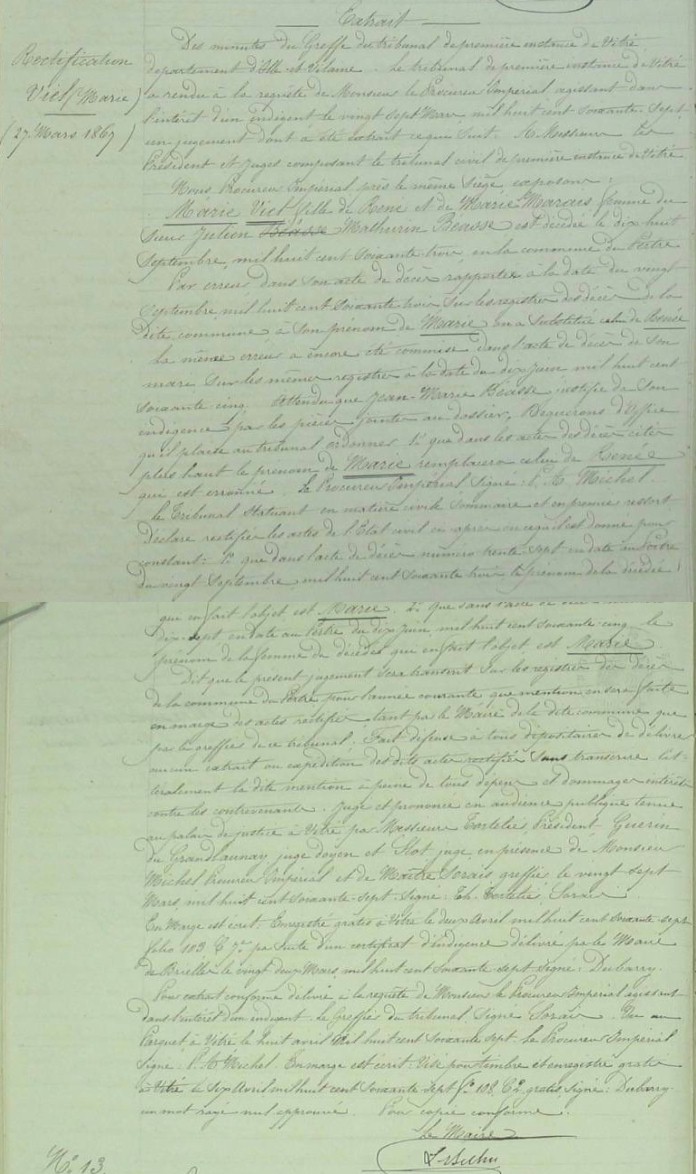 Extrait
Rectification
Viel (Marie)
(27 Mars 1867)
Des minutes du Greffe du tribunal de première instance de Vitré
département d'Ille et Vilaine. Le tribunal de première instance de Vitré
a rendu à la requête de Monsieur le Procureur Impérial agissant dans
l'intérêt d'un indigent le vingt sept Mars mil huit cent soixante-sept
un jugement dont a été extrait ce qui suit. A Messieurs les
Président et Juges composant le tribunal civil de première instance de Vitré
Nous Procureur Impérial près le même siège exposons:
Marie Viel fille de René et de Marie Marais femme de
sieur Julien Béasse Mathurin Beasse est décédée le dix huit
Septembre mil huit cent soixante trois en la commune du Pertre
Par erreur dans son acte de décès rapporté à la date du vingt
Septembre mil huit cent soixante trois sur les registres des décès de la
dite commune à son prénom de Marie on a substitué celui de Renée
La même erreur a encore été commise dans l'acte de décès de son
mari sur les mêmes registres à la date du dix Juin mil huit cent
soixante cinq. Attendu que Jean-Marie Béasse justifie de son
indigence par les pièces jointes au dossier, Requérons d'office
qu'il plaise au tribunal ordonner 1° que dans les actes des décès cités
plus haut le prénom de Marie remplacera celui de Renée
qui est erronné. Le Procureur Impérial signé: P. C. Michel.
Le Tribunal statuant en matière civile sommaire et en premier ressort
déclare rectifier les actes de l'Etat civil ci-après en ce qu'il est donné pour
constant: 1° que dans l'acte de décès numéro trente sept en date au Pertre
du vingt Septembre mil huit cent soixante trois le prénom de la décédée
qui en fait l'objet est Marie. 2° que dans l'acte de décès
dix-sept en date au Pertre du dix Juin mil huit cent soixante-cinq le
prénom de la femme du décédé qui en fait l'objet est Marie
Dit que le présent jugement sera transcrit sur les registres des décès
de la commune du Pertre pour l'année courante que mention en sera faite
en marge des actes rectifiés tant par le Maire de la dite commune que
par le greffier de ce tribunal. Fait défense à tous dépositaires de délivrer
aucun extrait ou expédition des dits actes rectifiés sans transcrire lit-
téralement la dite mention à peine de tous dépens et dommages intérêts
contre les contrevenants. Jugé et prononcé en audience publique tenue
au palais de justice à Vitré par Messieurs Tortelier Président Guerin
du Grandlaunay juge doyen et Hot juge en présence de Monsieur
Michel Procureur Impérial et de Maître Sorais greffier le vingt sept
Mars mil huit cent soixante-sept. Signé: Th. Tortelier, Sorais
En Marge est écrit. Enregistré gratis à Vitré le deux Avril mil huit cent soixante-sept
folio 103 C 7e par suite d'un certificat d'indigence délivré par le Maire
de Brielles le vingt deux Mars mil huit cent soixante sept signé: Dubarry.
Pour extrait conforme délivré à la requête de Monsieur le Procureur Impérial agissant
dans l'intérêt d'un indigent. Le Greffier du tribunal Signé Sorais. Vu au
Parquet à Vitré le huit avril mil huit cent soixante sept. Le Procureur Impérial
signé: P. C. Michel. En marge est écrit: Visé pour timbre et enregistré gratis
à Vitré le six Avril mil huit cent soixante sept f° 108 C 2 gratis, signé: Dubarry
un mot rayé nul approuvé. Pour copie conforme
Le Maire
N° 13.